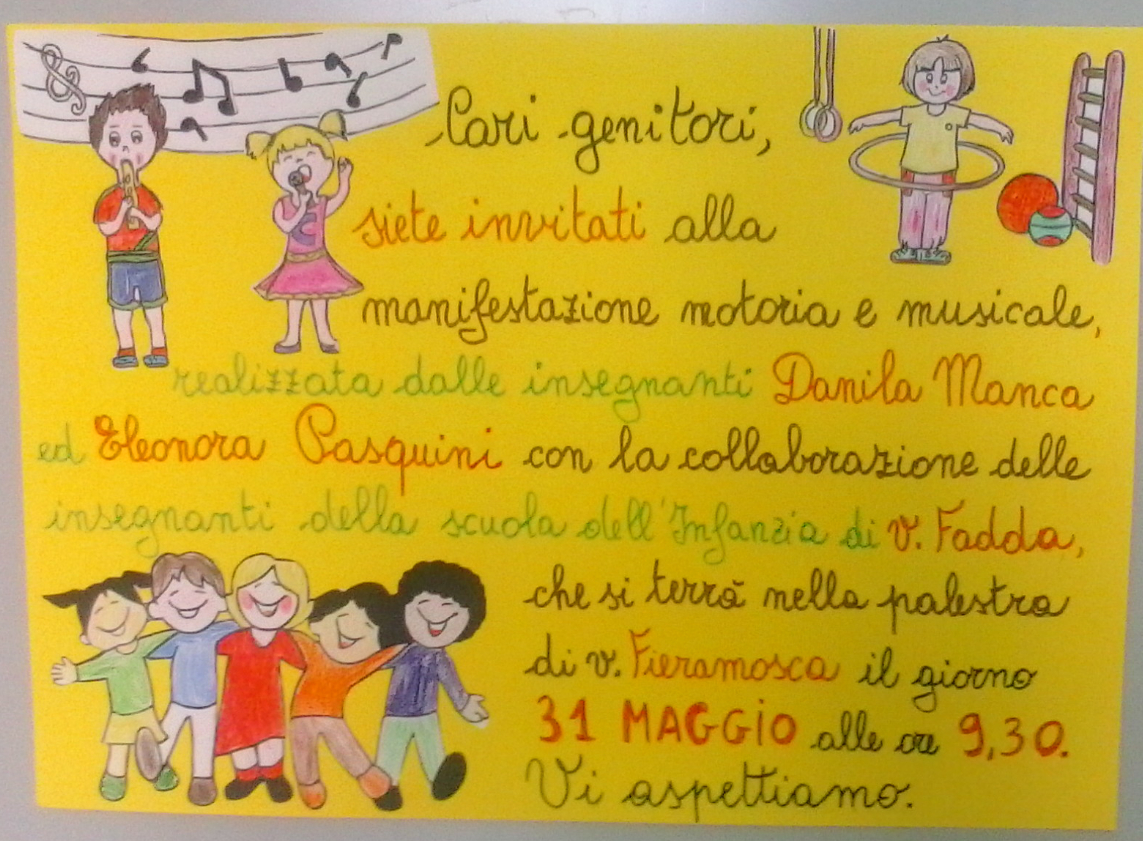 Cari genitori,
siete invitati alla
manifestazione motoria e musicale,
realizzata dalle insegnanti Danila Manca
ed Eleonora Pasquini con la collaborazione delle
insegnanti della scuola dell'Infanzia di v. Fadda,
che si terrà nella palestra
di v. Fieramosca il giorno
31 MAGGIO alle ore 9,30.
Vi aspettiamo.